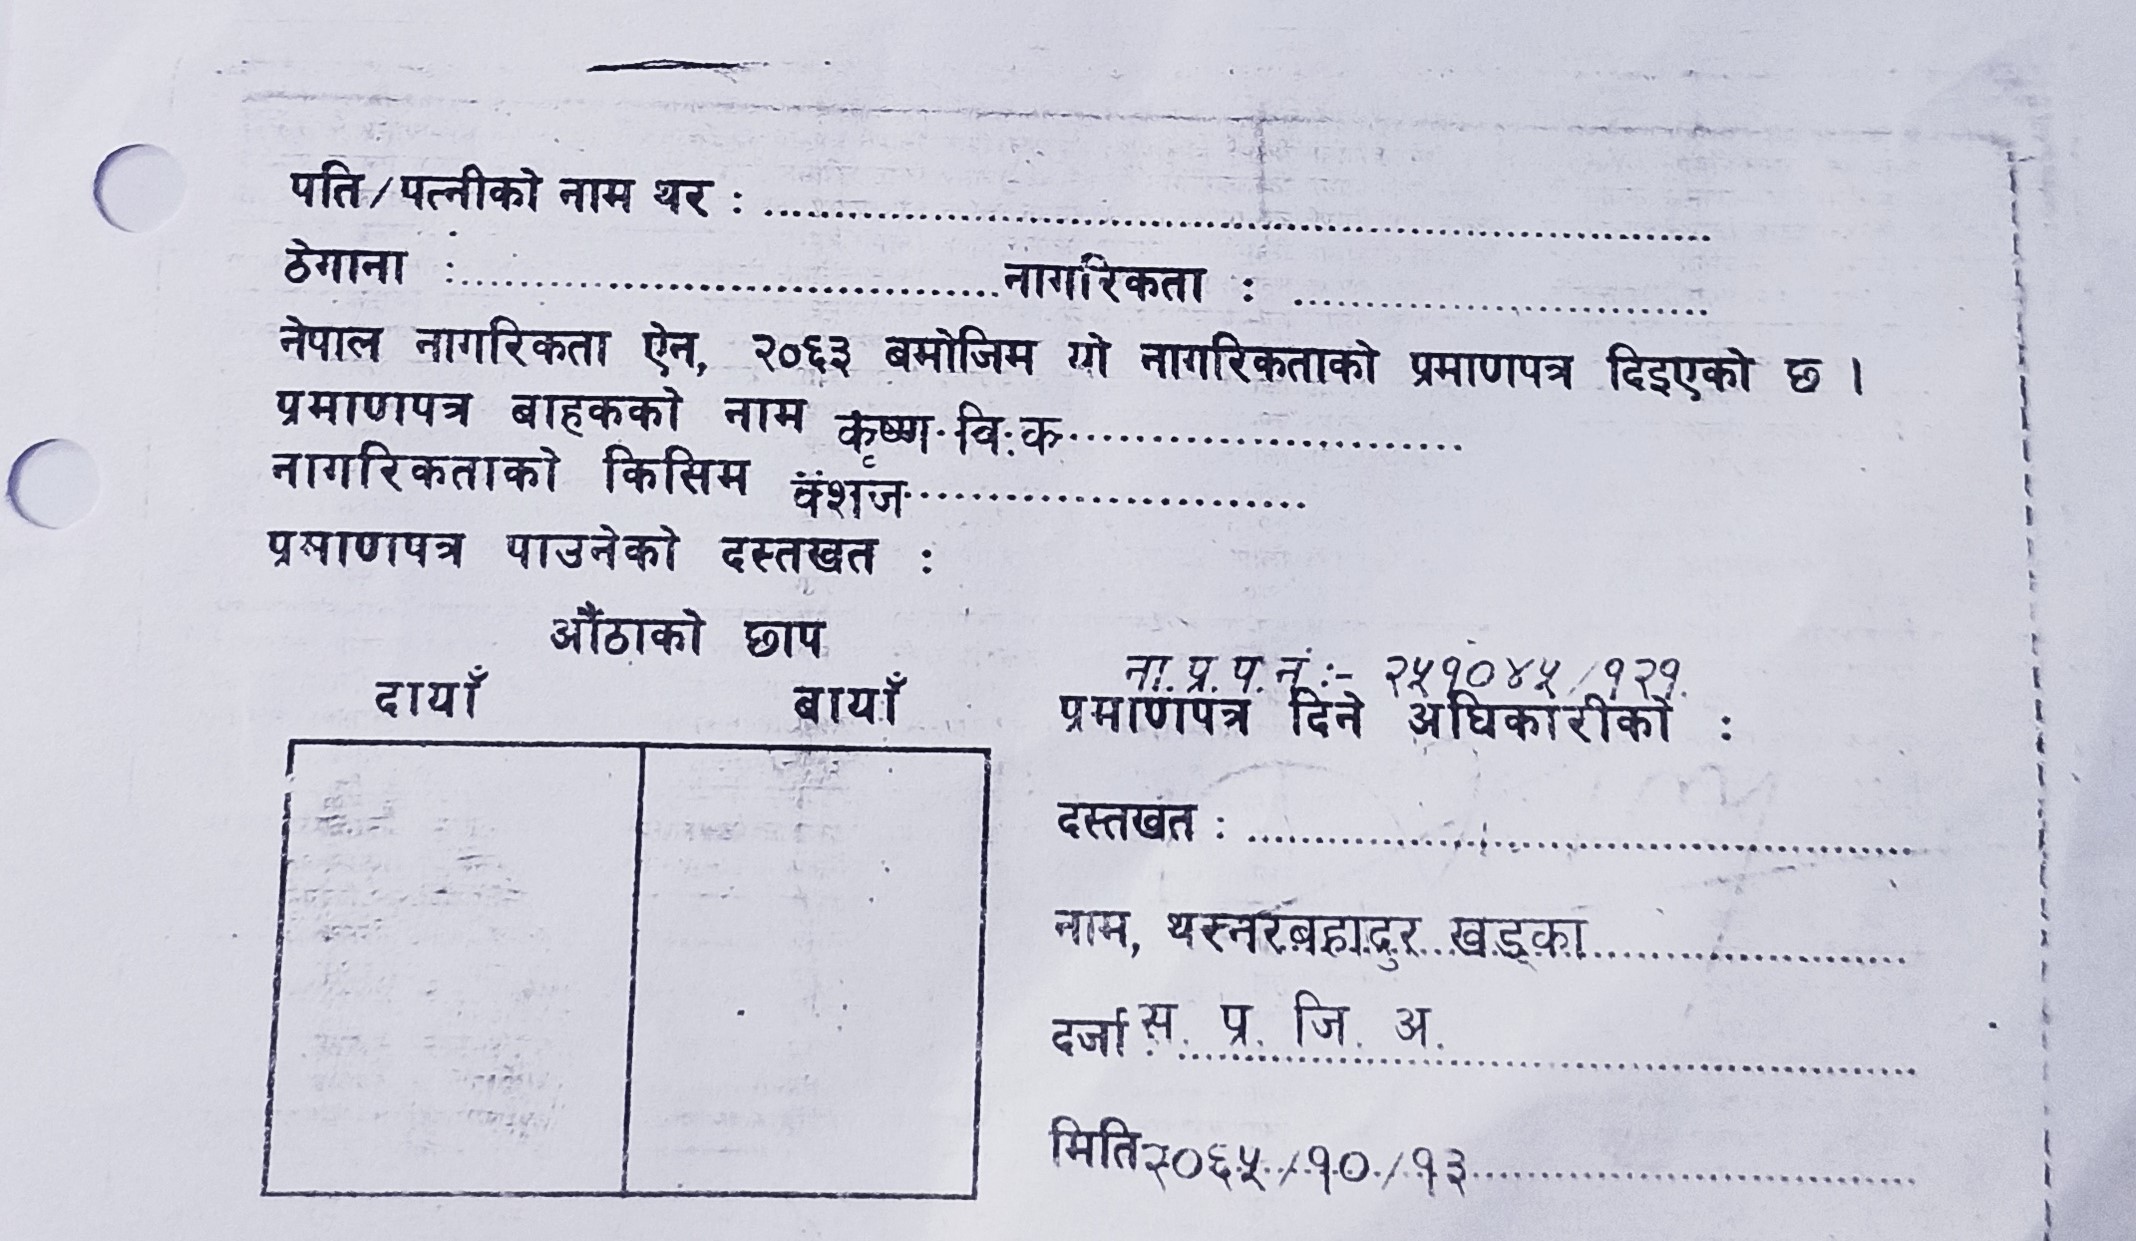 पति/पत्नीको नाम थर : ........................................
ठेगाना : ........................................ नागरिकता : ....................
नेपाल नागरिकता ऐन, २०६३ बमोजिम यो नागरिकताको प्रमाणपत्र दिइएको छ ।
प्रमाणपत्र बाहकको नाम कृष्ण वि.क....................
नागरिकताको किसिम वंशज....................
प्रमाणपत्र पाउनेको दस्तखत :
औंठाको छाप
दायाँ बायाँ
ना.प्र.प.नं:- २५१०४५/१२१.
प्रमाणपत्र दिने अधिकारीको :
दस्तखत : ........................................
नाम, थर नरबहादुर खड्का....................
दर्जा : स. प्र. जि. अ. ....................
मिति २०६५/१०/१३....................